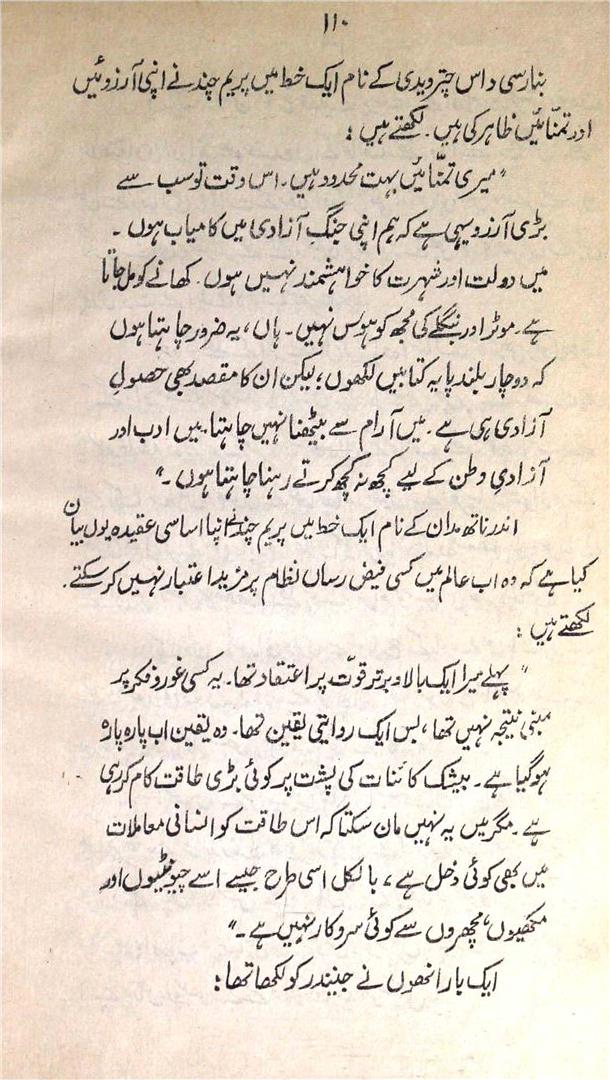 ۱۱۰
بنارسی داس چترویدی کے نام ایک خط میں پریم چند نے اپنی آرزوئیں
اور تمنّائیں ظاہر کی ہیں۔ لکھتے ہیں:
"میری تمنّائیں بہت محدود ہیں۔ اس وقت تو سب سے
بڑی آرزو یہی ہے کہ ہم اپنی جنگِ آزادی میں کامیاب ہوں۔
میں دولت اور شہرت کا خواہشمند نہیں ہوں۔ کھانے کو مل جاتا
ہے۔ موٹر اور بنگلے کی مجھ کو ہوس نہیں۔ ہاں، یہ ضرور چاہتا ہوں
کہ دو چار بلند پایہ کتابیں لکھوں؛ لیکن ان کا مقصد بھی حصولِ
آزادی ہی ہے۔ میں آرام سے بیٹھنا نہیں چاہتا۔ میں ادب اور
آزادیِ وطن کے لیے کچھ نہ کچھ کرتے رہنا چاہتا ہوں۔"
اندر ناتھ مدان کے نام ایک خط میں پریم چند نے اپنا اساسی عقیدہ یوں بیان
کیا ہے کہ وہ اب عالم میں کسی فیض رساں نظام پر مزید اعتبار نہیں کر سکتے۔
لکھتے ہیں:
"پہلے میرا ایک بالا و برتر قوّت پر اعتقاد تھا۔ یہ کسی غور و فکر پر
مبنی نتیجہ نہیں تھا، بس ایک روایتی یقین تھا۔ وہ یقین اب پارہ پارہ
ہو گیا ہے۔ بیشک کائنات کی پشت پر کوئی بڑی طاقت کام کر رہی
ہے۔ مگر میں یہ نہیں مان سکتا کہ اس طاقت کو انسانی معاملات
میں بھی کوئی دخل ہے، بالکل اسی طرح جیسے اسے چیونٹیوں اور
مکھیوں، مچھروں سے کوئی سروکار نہیں ہے۔"
ایک بار انھوں نے جنیندر کو لکھا تھا: